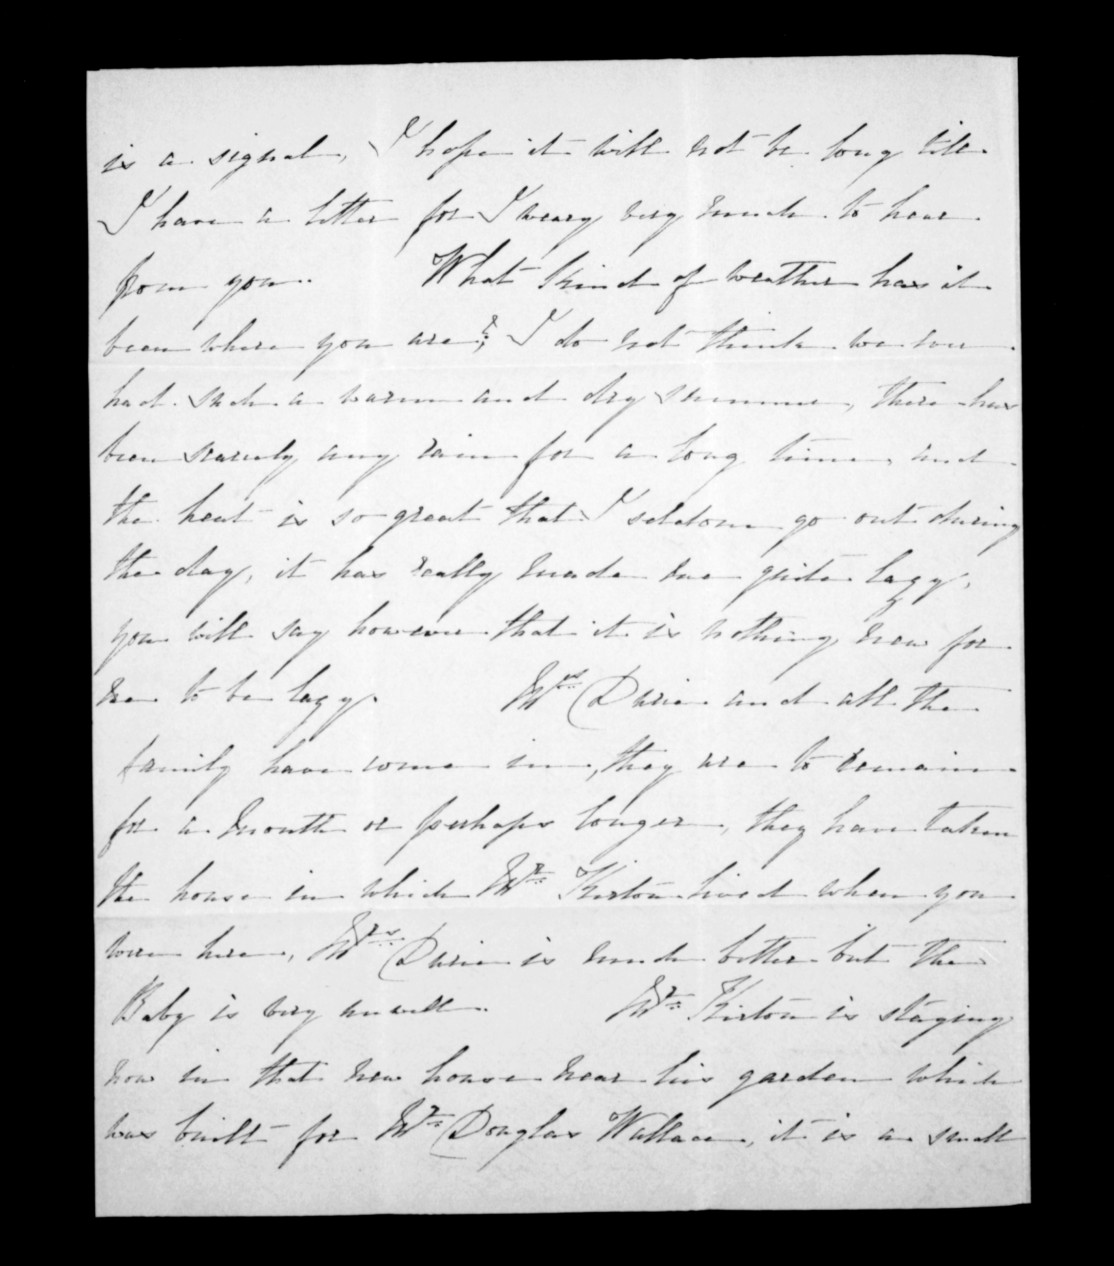 is a signal, I hope it will not be long till
I have a letter for I weary very much to hear
from you. What kind of weather has it
been where you are?, I do not think we ever
had such a warm and dry summer, there has
been scarcely any rain for a long time, and
the heat is so great that I seldom go out during
the day, it has really made me quite lazy,
you will say however that it is nothing new for
me to be lazy. Mrs. and all the
family have come in, they are to remain
for a month or perhaps longer, they have taken
the house in which Mr. Kirton lived when you
were here, Mrs. is much better but the
Baby is very unwell. Mr. Kirton is staying
now in that new house near his garden which
was built for Mr. Douglas Wallace, it is a small